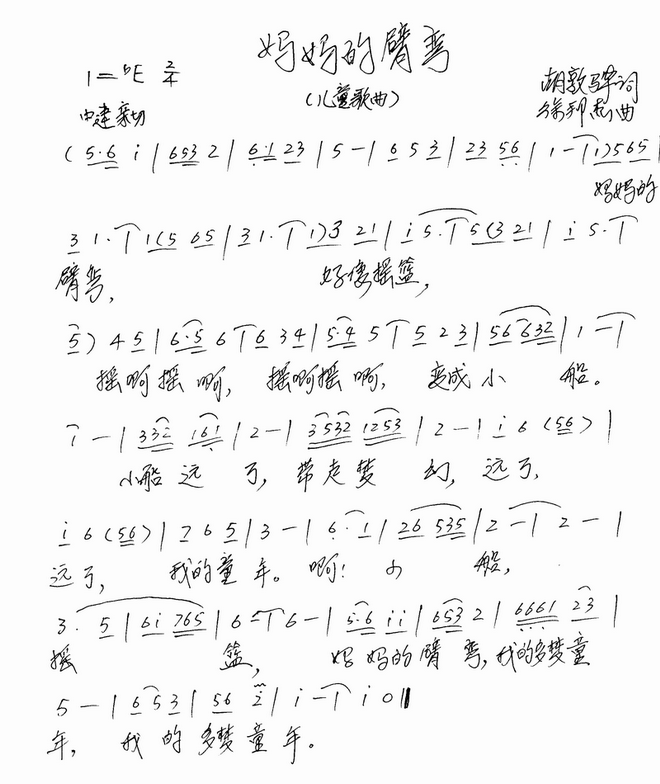 妈妈的臂弯
1=♭E 2/4
（儿童歌曲）
中速 亲切
胡敦骅词
曲
( 5·6 i | 653 2 | 6·1 23 | 5 - | 6 5 3 | 23 56 | 1 - | 1) 565 |
妈妈的
3 1· | 1(5 65 | 31· | 1)3 21 | i 5· | 5(3 21 | i 5· |
臂弯， 好像摇篮，
5) 4 5 | 6·5 6 | 6 34 | 5·4 5 | 5 2 3 | 56 632 | 1 - |
摇啊摇啊， 摇啊摇啊， 变成小船。
1 - | 332 161 | 2 - | 3532 1253 | 2 - | i 6 (56) |
小船远了，带走梦幻，远了，
i 6 (56) | 7 6 5 | 3 - | 6· 1 | 26 535 | 2 - | 2 - |
远了， 我的童年。啊！小船，
3· 5 | 6i 765 | 6 - | 6 - | 5·6 ii | 653 2 | 6661 23 |
摇篮， 妈妈的臂弯，我的多梦童
5 - | 6 5 3 | 56 2 | i - | i 0 ‖
年， 我的多梦童年。